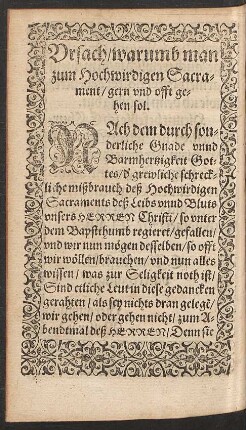 Vrsach/warumb man
zum Hochwirdigen Sacra-
ment/gern vnd offt ge-
hen sol.
NAch dem durch son-
derliche Gnade vnnd
Barmhertzigkeit Got-
tes/d grewliche schreck-
liche mißbrauch deß Hochwirdigen
Sacraments deß Leibs vnnd Bluts
vnsers HERREN Christi/so vnter
dem Bapsthumb regieret/gefallen/
vnd wir nun mögen desselben/so offt
wir wöllen/brauchen/vnd nun alles
wissen/was zur Seligkeit noth ist/
Sind etliche Leut in diese gedancken
gerahten/als sey nichts dran gelegē/
wir gehen/oder gehen nicht/zum A-
bendtmal deß HERREN/Denn sie